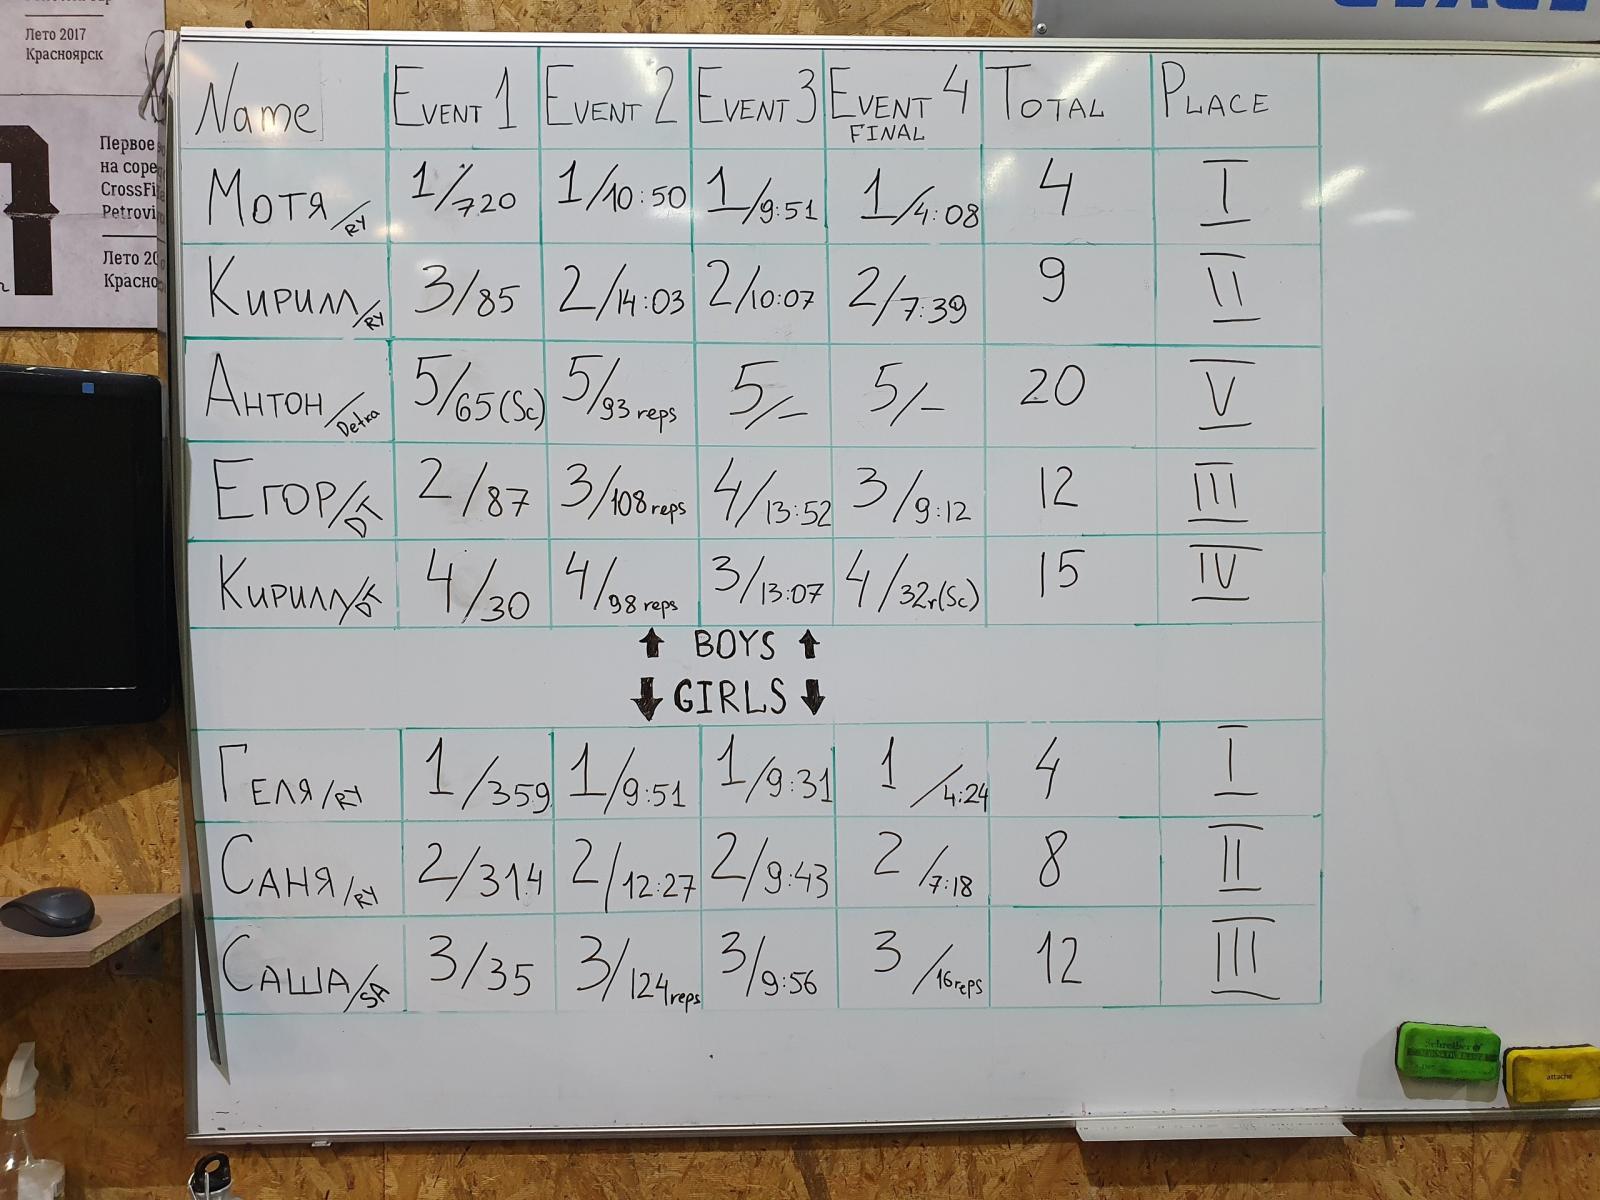 Лето 2017
Красноярск
Первое
на соре
CrossFi
Petrovi
Лето 20
Красно
Name EVENT 1 EVENT 2 EVENT 3 EVENT 4 TOTAL PLACE
FINAL
МОТЯ/RY 1/720 1/10:50 1/9:51 1/4:08 4 I
КИРИЛЛ/RY 3/85 2/14:03 2/10:07 2/7:39 9 II
АНТОН/Detka 5/65(Sc) 5/93 reps 5/– 5/– 20 V
ЕГОР/DT 2/87 3/108 reps 4/13:52 3/9:12 12 III
КИРИЛЛ/DT 4/30 4/98 reps 3/13:07 4/32r(Sc) 15 IV
↑ BOYS ↑
↓ GIRLS ↓
ГЕЛЯ/RY 1/359 1/9:51 1/9:31 1/4:24 4 I
САНЯ/RY 2/314 2/12:27 2/9:43 2/7:18 8 II
САША/SA 3/35 3/124 reps 3/9:56 3/16 reps 12 III
Schreiber
attache